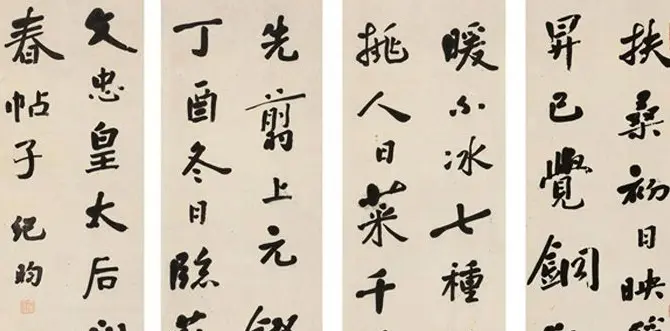 扶桑初日映
昇已覺銅
暖不冰七種
挑人日菜千
先翦上元
丁酉冬日臨
文忠皇太后
春帖子 紀昀